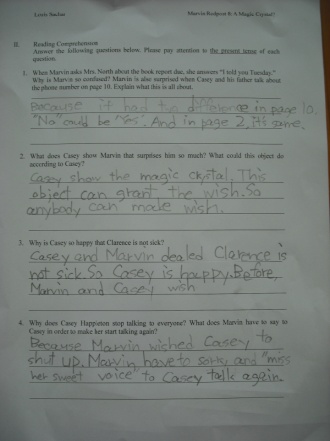 Marvin Redpost 8: A Magic Crystal?
II. Reading Comprehension
Answer the following questions below. Please pay attention to the present tense of each
question.
1. When Marvin asks Mrs. North about the book report due, she answers "I told you Tuesday."
Why is Marvin so confused? Marvin is also surprised when Casey and his father talk about
the phone number on page 10. Explain what this is all about.
Because it had two difference in page 10,
"No" could be "Yes". And in page 2, it's same.
2. What does Casey show Marvin that surprises him so much? What could this object do
according to Casey?
Casey show the magic crystal. This
object can grant the wish. So
anybody can made wish.
3. Why is Casey so happy that Clarence is not sick?
Casey and Marvin dealed Clarence is
not sick. So Casey is happy. Before,
Marvin and Casey wish
4. Why does Casey Happleton stop talking to everyone? What does Marvin have to say to
Casey in order to make her start talking again?
Because Marvin wished Casey to
shut up. Marvin have to sorry and "miss
her sweet voice" to Casey talk again.